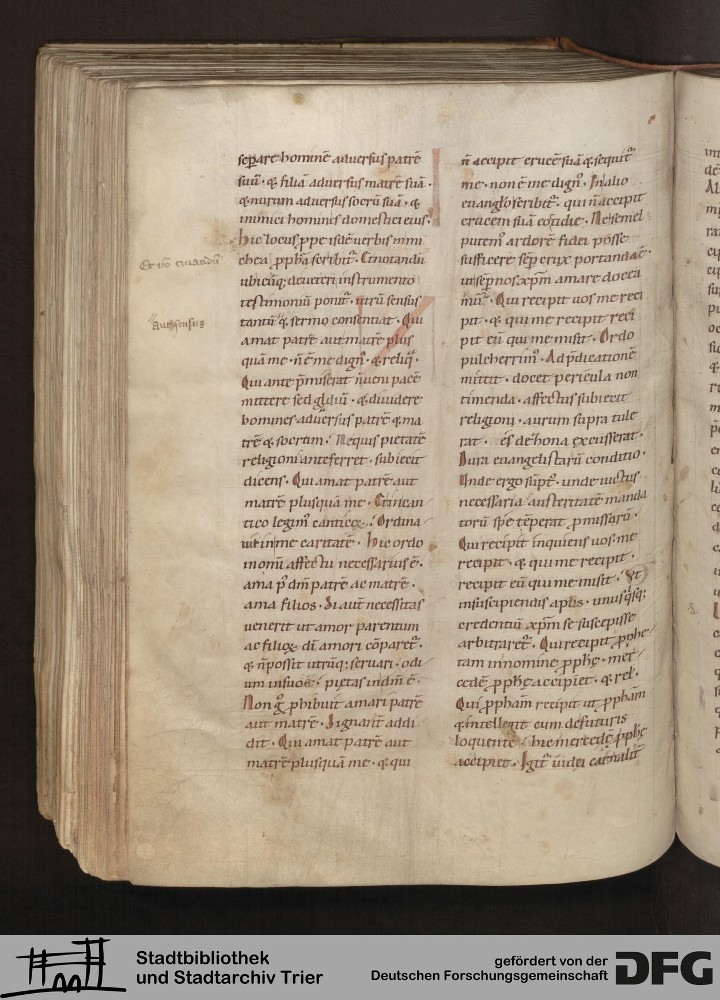 sep̄are hominē aduersus patrē
suū · & filiā aduersus matrē suā ·
& nurum aduersus socrū suā · &
inimici hominis domestici eius ·
Hic locus ꝓpe isdē uerbis in mi
chea ꝓph̄a scribit᷑ · Et notandū
ubicūq; de ueteri instrumento
testimoniū ponit᷑ · utrū sensus
tantū & sermo consentiat · Qui
amat patrē aut matrē plus
quā me · n̄ ē me dign᷒ · & reliq̄ ·
Qui ante p̄miserat n̄ ueni pacē
mittere sed gladiū · & diuidere
homines aduersus patrē & ma
trē & socrum · Nequis pietatē
religioni anteferret · subiecit
dicens · Qui amat patrē aut
matrē plusquā me · Et in can
tico legim᷒ canticoꝝ · Ordina
uit in me caritatē · Hic ordo
in omū affectu necessarius ē ·
ama p᷒ dm̄ patrē ac matrē ·
ama filios · Si aut̄ necessitas
uenerit ut amor parentum
ac filioꝝ dī amori cōparet᷑ ·
& n̄ possit utrūq; seruari · odi
um in suos · pietas in dm̄ ē ·
Non g̊ ꝓhibuit amari patrē
aut matrē · Signant̄ addi
dit · Qui amat patrē aut
matrē plusquā me · & qui
n̄ accipit crucē suā & sequit᷑
me · non ē me dign᷒ · In alio
euanglo scribit᷑ · qui n̄ accipit
crucem suā cotidie · Ne semel
putem᷒ ardorē fidei posse
sufficere · sēp crux portanda ē ·
ut sēp nos xp̄m amare docea
mur · Qui recipit uos me reci
pit · & qui me recipit reci
pit eū qui me misit · Ordo
pulcherrim᷒ · Ad p̄dicationē
mittit · docet pericula non
timenda · affectus subiecit
religioni · aurum supra tule
rat · ęs de zona excusserat ·
Dura euangelistarū conditio ·
Unde ergo sūpt᷒ · unde uictus
necessaria · austeritatē manda
torū spe tēperat ꝓmissorū ·
Qui recipit inquiens uos · me
recipit · & qui me recipit ·
recipit eū qui me misit · Ut
in suscipiendis apl̄is · unusq̄sq;
credentiū xp̄m se suscepisse
arbitraret᷑ · Qui recipit ꝓphe
tam in nomine ꝓphę · mer
cedē ꝓphę accipiet · & rel̄ ·
Qui ꝓpham recipit ut ꝓpham
& intellegit eum de futuris
loquentē · hic mercedē ꝓphę
accipiet · Igit᷑ iudei carnalit̄
Et nō
sensus
Stadtbibliothek
und Stadtarchiv Trier
gefördert von der
Deutschen Forschungsgemeinschaft
DFG